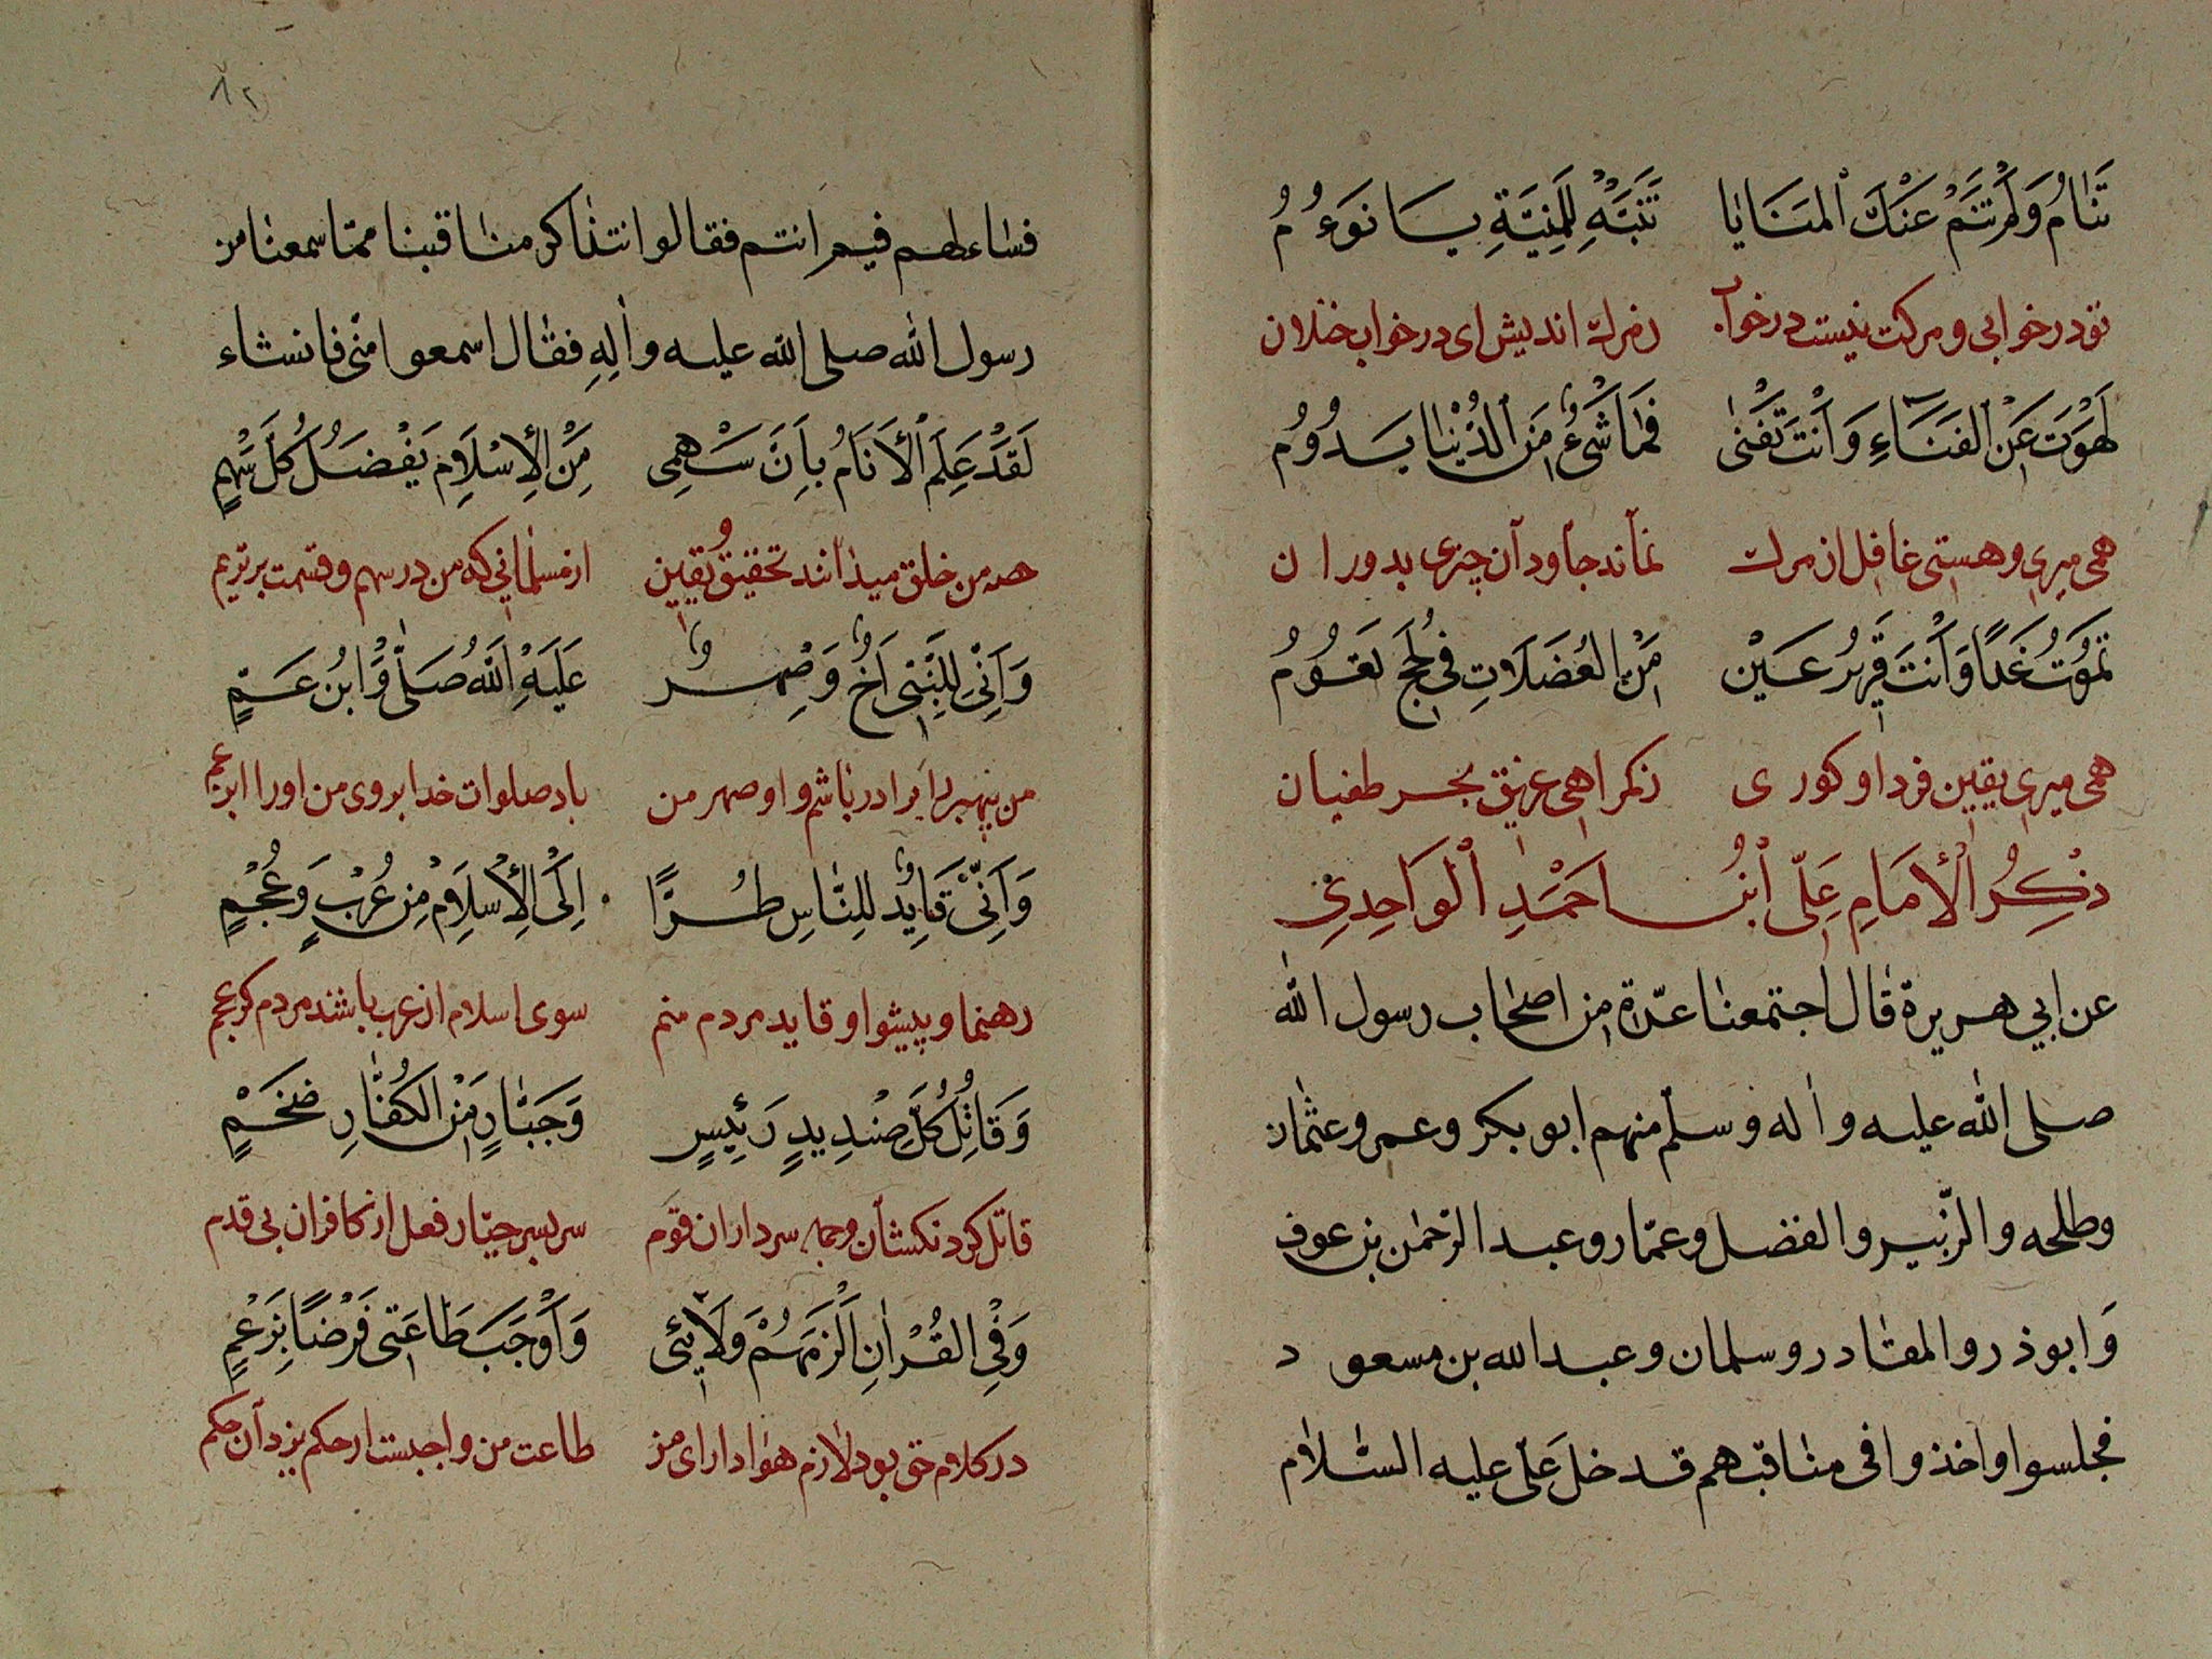 تَنَامُ وَلَمْ تَنَمْ عَنْكَ الْمَنَايَا تَنَبَّهْ لِلْمَنِيَّةِ يَا نَوءُمُ
تو در خوابی و مرکت نیست در خواب ز مرك اندیش ای در خواب خذلان
لَهَوْتَ عَنِ الْفَنَاءِ وَاَنْتَ تَفْنٰى فَمَا شَىْءٌ مِنَ الدُّنْيَا يَدُوُمُ
همی میری و هستی غافل از مرك نماند جاودان چیزی بدوران
تَمُوتُ غَدًا وَاَنْتَ قَرِيرُ عَيْن مِنَ الْعُضَلَاتِ فِى لُجَجٍ تَعُوُمُ
همی میری یقین فردا و کوری ز کمراهی غریق بحر طغیان
ذِكْرُ الْاِمَامِ عَلِىّ ابْنُ احَمْدِ الْوَاحِدِىِّ
عن ابي هريرة قال اجتمعنا عدّة من اصحاب رسول الله
صلى الله عليه واله وسلم منهم ابو بكر وعمر وعثمان
وطلحه والزّبير والفضل وعمّار وعبد الرّحمن بن عوف
وَابوذر والمقادر وسلمان وعبد الله بن مسعود
فجلسوا واخذوا فى مناقبهم قد خل عَلىّ عليه السّلام
٨٢
فساءلهم فيم انتم فقالوا نتذاكر مناقبنا ممّا سمعنا من
رسول الله صلى الله عليه واٰلِهِ فقال اسمعوا منّى فانشاء
لَقَدْ عَلِمَ الْأَنَامُ بِاَنَّ سَهْمِى مِنَ الْاِسْلَامِ يَفْضُلُ كُلَّ سَهْمٍ
همه من خلق میدانند تحقیق و یقین از مسلمانی که من در سهم و قسمت برترم
وَاَنِّى لِلنَّبِىِّ اَخٌ وَصِهْرٌ عَلَيْهِ اللهُ صَلَّى وَابْنُ عَمٍّ
من پیمبر را برادر باشم و او صهر من باد صلوات خدا بر وی من او را ابن عم
وَاَنِّى قَايِدٌ لِلنَّاسِ طُرًّا اِلَى الْاِسْلَامِ مِنْ عُرْبٍ وَعُجْمٍ
رهنما و پیشوا و قاید مردم منم سوی اسلام از عرب باشند مردم کر عجم
وَقَاتِلُ كُلِّ صِنْدِيدٍ رَئِيسٍ وَجَبَّارٍ مِنَ الْكُفَّارِ ضَخْمٍ
قاتل کردنکشان و جمله سرداران قوم سر بسر جبّار فعل از کافران بی قدم
وَفِى الْقُرْاٰنِ اَلْزَمَهُمْ وَلَائِى وَاَوْجَبَ طَاعَتِى فَرْضًا بِزَعْمٍ
در کلام حق بود لازم هوادارای من طاعت من واجبست از حکم یزدان حکم